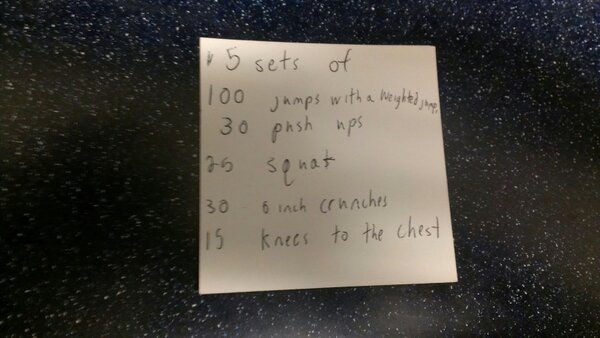 5 sets of
100 jumps with a Weighted jump
30 push ups
25 squat
30 6 inch crunches
15 knees to the chest